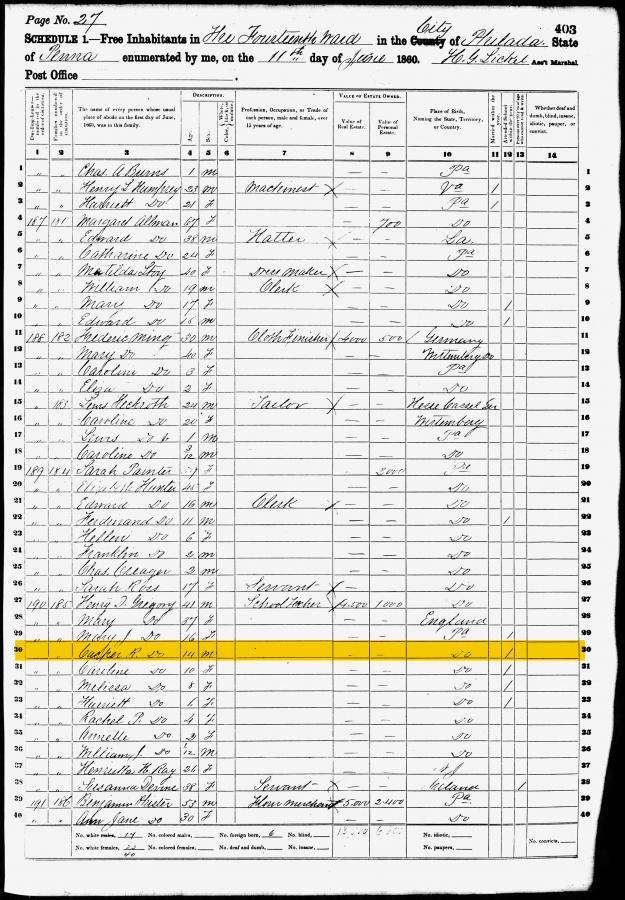 Page No. 27
403
SCHEDULE 1.—Free Inhabitants in The Fourteenth Ward in the County City of Philada. State
of Penna enumerated by me, on the 11th day of June 1860. Ass't Marshal
Post Office
DESCRIPTION.
VALUE OF ESTATE OWNED.
The name of every person whose usual place of abode on the first day of June, 1860, was in this family.
Profession, Occupation, or Trade of each person, male and female, over 15 years of age.
Value of Real Estate.
Value of Personal Estate.
Place of Birth, Naming the State, Territory, or Country.
Whether deaf and dumb, blind, insane, idiotic, pauper, or convict.
1 2 3 4 5 6 7 8 9 10 11 12 13 14
1 " " Chas. A Burns 1 m — — Pa 1
2 " " Henry L Humphrey 23 m Machinest — — Va / 2
3 " " Harriett Do 21 f — — Pa / 3
4 187 191 Margaret Altman 67 f — 700 Do 4
5 " " Edward Do 38 m Hatter — — Ga. 5
6 " " Catharine Do 24 f — — Pa 6
7 " " Matilda Stoy 40 f Dress Maker — — Do 7
8 " " William Do 19 m Clerk — — Do 8
9 " " Mary Do 17 f — — Do / 9
10 " " Edward Do 15 m — — Do / 10
11 188 182 Frederic Ming 30 m Cloth Finisher 4000 500 Germany 11
12 " " Mary Do 40 f Wirtemberg Do 12
13 " " Caroline Do 3 f Pa 13
14 " " Eliza Do 2 f — — Do 14
15 " 183 Lewis Heckroth 24 m Tailor — — Hesse Cassel Ger 15
16 " " Caroline Do 20 f Wirtemberg 16
17 " " Lewis Do 1 m — — Pa 17
18 " " Caroline Do 3/12 — — Do 18
19 189 184 Sarah Painter f 3000 Pa 19
20 " " Elizabth Hunter 45 f — — Do 20
21 " " Edward Do 16 m Clerk — — Do 21
22 " " Ferdinand Do 11 m — — Do / 22
23 " " Hellen Do 6 f — — Do 23
24 " " Franklin Do 2 m — — Do 24
25 " " Chas. Creager 2 m — — Do 25
26 " " Sarah Ross 17 f Servant — — Do 26
27 190 185 Henry D. Gregory 41 m School Teacher 4.500 1000 Do 27
28 " " Mary Do 37 f England 28
29 " " Mary J. Do 16 f — — Pa / 29
30 " " Casper R. Do 14 m — — Do / 30
31 " " Caroline Do 10 f — — Do / 31
32 " " Melissa Do 8 f — — Do / 32
33 " " Harriett Do 6 f — — Do / 33
34 " " Rachel P. Do 4 f — — Do 34
35 " " Annette Do 2 f — — Do 35
36 " " William J. Do 1/12 m — — Do 36
37 " " Henrietta H. Ray 26 f — — N J 37
38 " " Susanna Devine 38 f Servant — — Ireland / 38
39 191 186 Benjamin 53 m Flour merchant 5.000 2400 Pa. 39
40 " " Ann Jane Do 30 f — — Do 40
No. white males, 17 No. colored males, No. foreign born, 6 No. blind, No. idiotic, No. convicts,
No. white females, 23 No. colored females, No. deaf and dumb, No. insane, No. paupers,
40